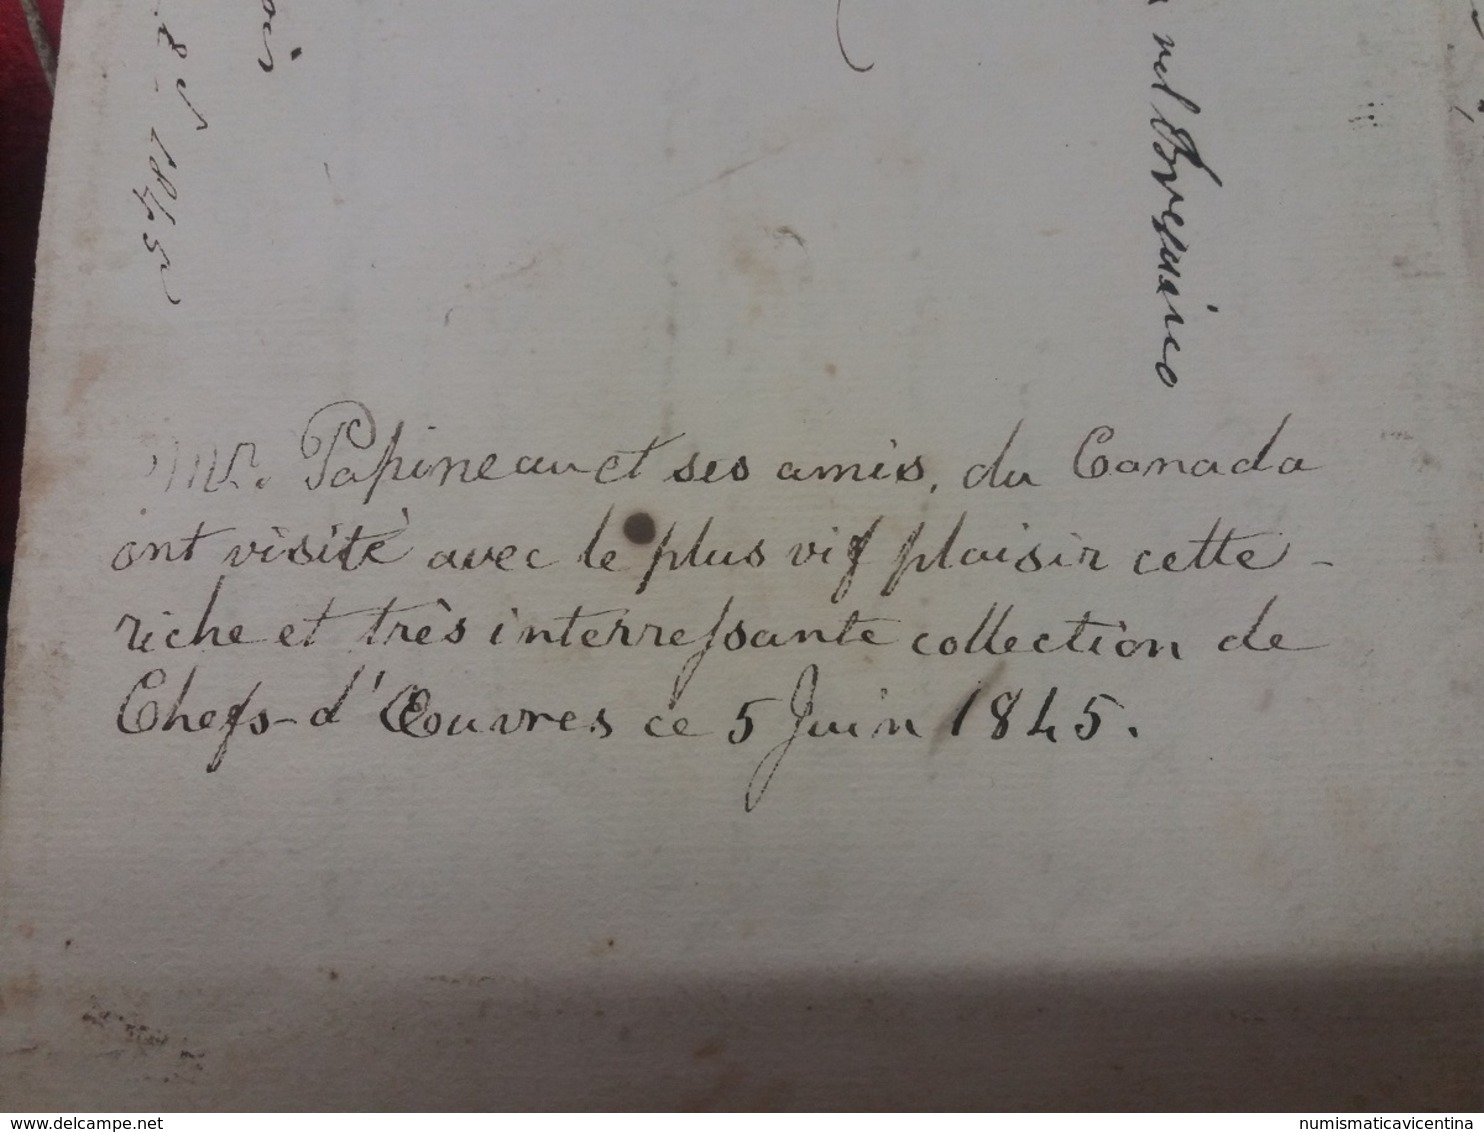 1845
nel Bresciano
Mr. Papineau et ses amis, du Canada
ont visité avec le plus vif plaisir cette -
riche et très interressante collection de
Chefs-d'Œouvres ce 5 Juin 1845.
delcampe.net
numismaticavicentina